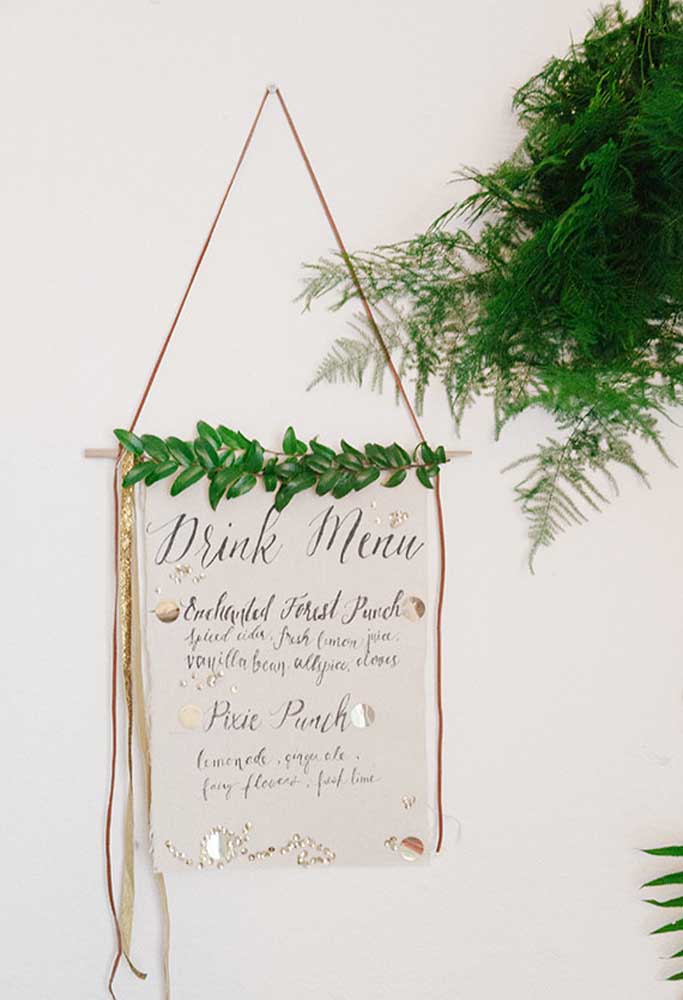 Drink Menu
Enchanted Forest Punch
Spiced cider, fresh lemon juice,
vanilla bean, allspice, cloves
Pixie Punch
lemonade, ginger ale,
fairy flowers, fresh lime